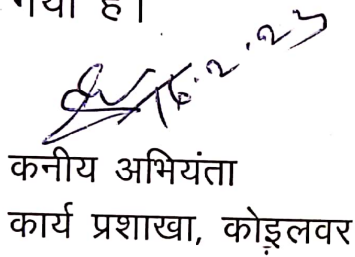 गया है।
16.2.23
कनीय अभियंता
कार्य प्रशाखा, कोइलवर